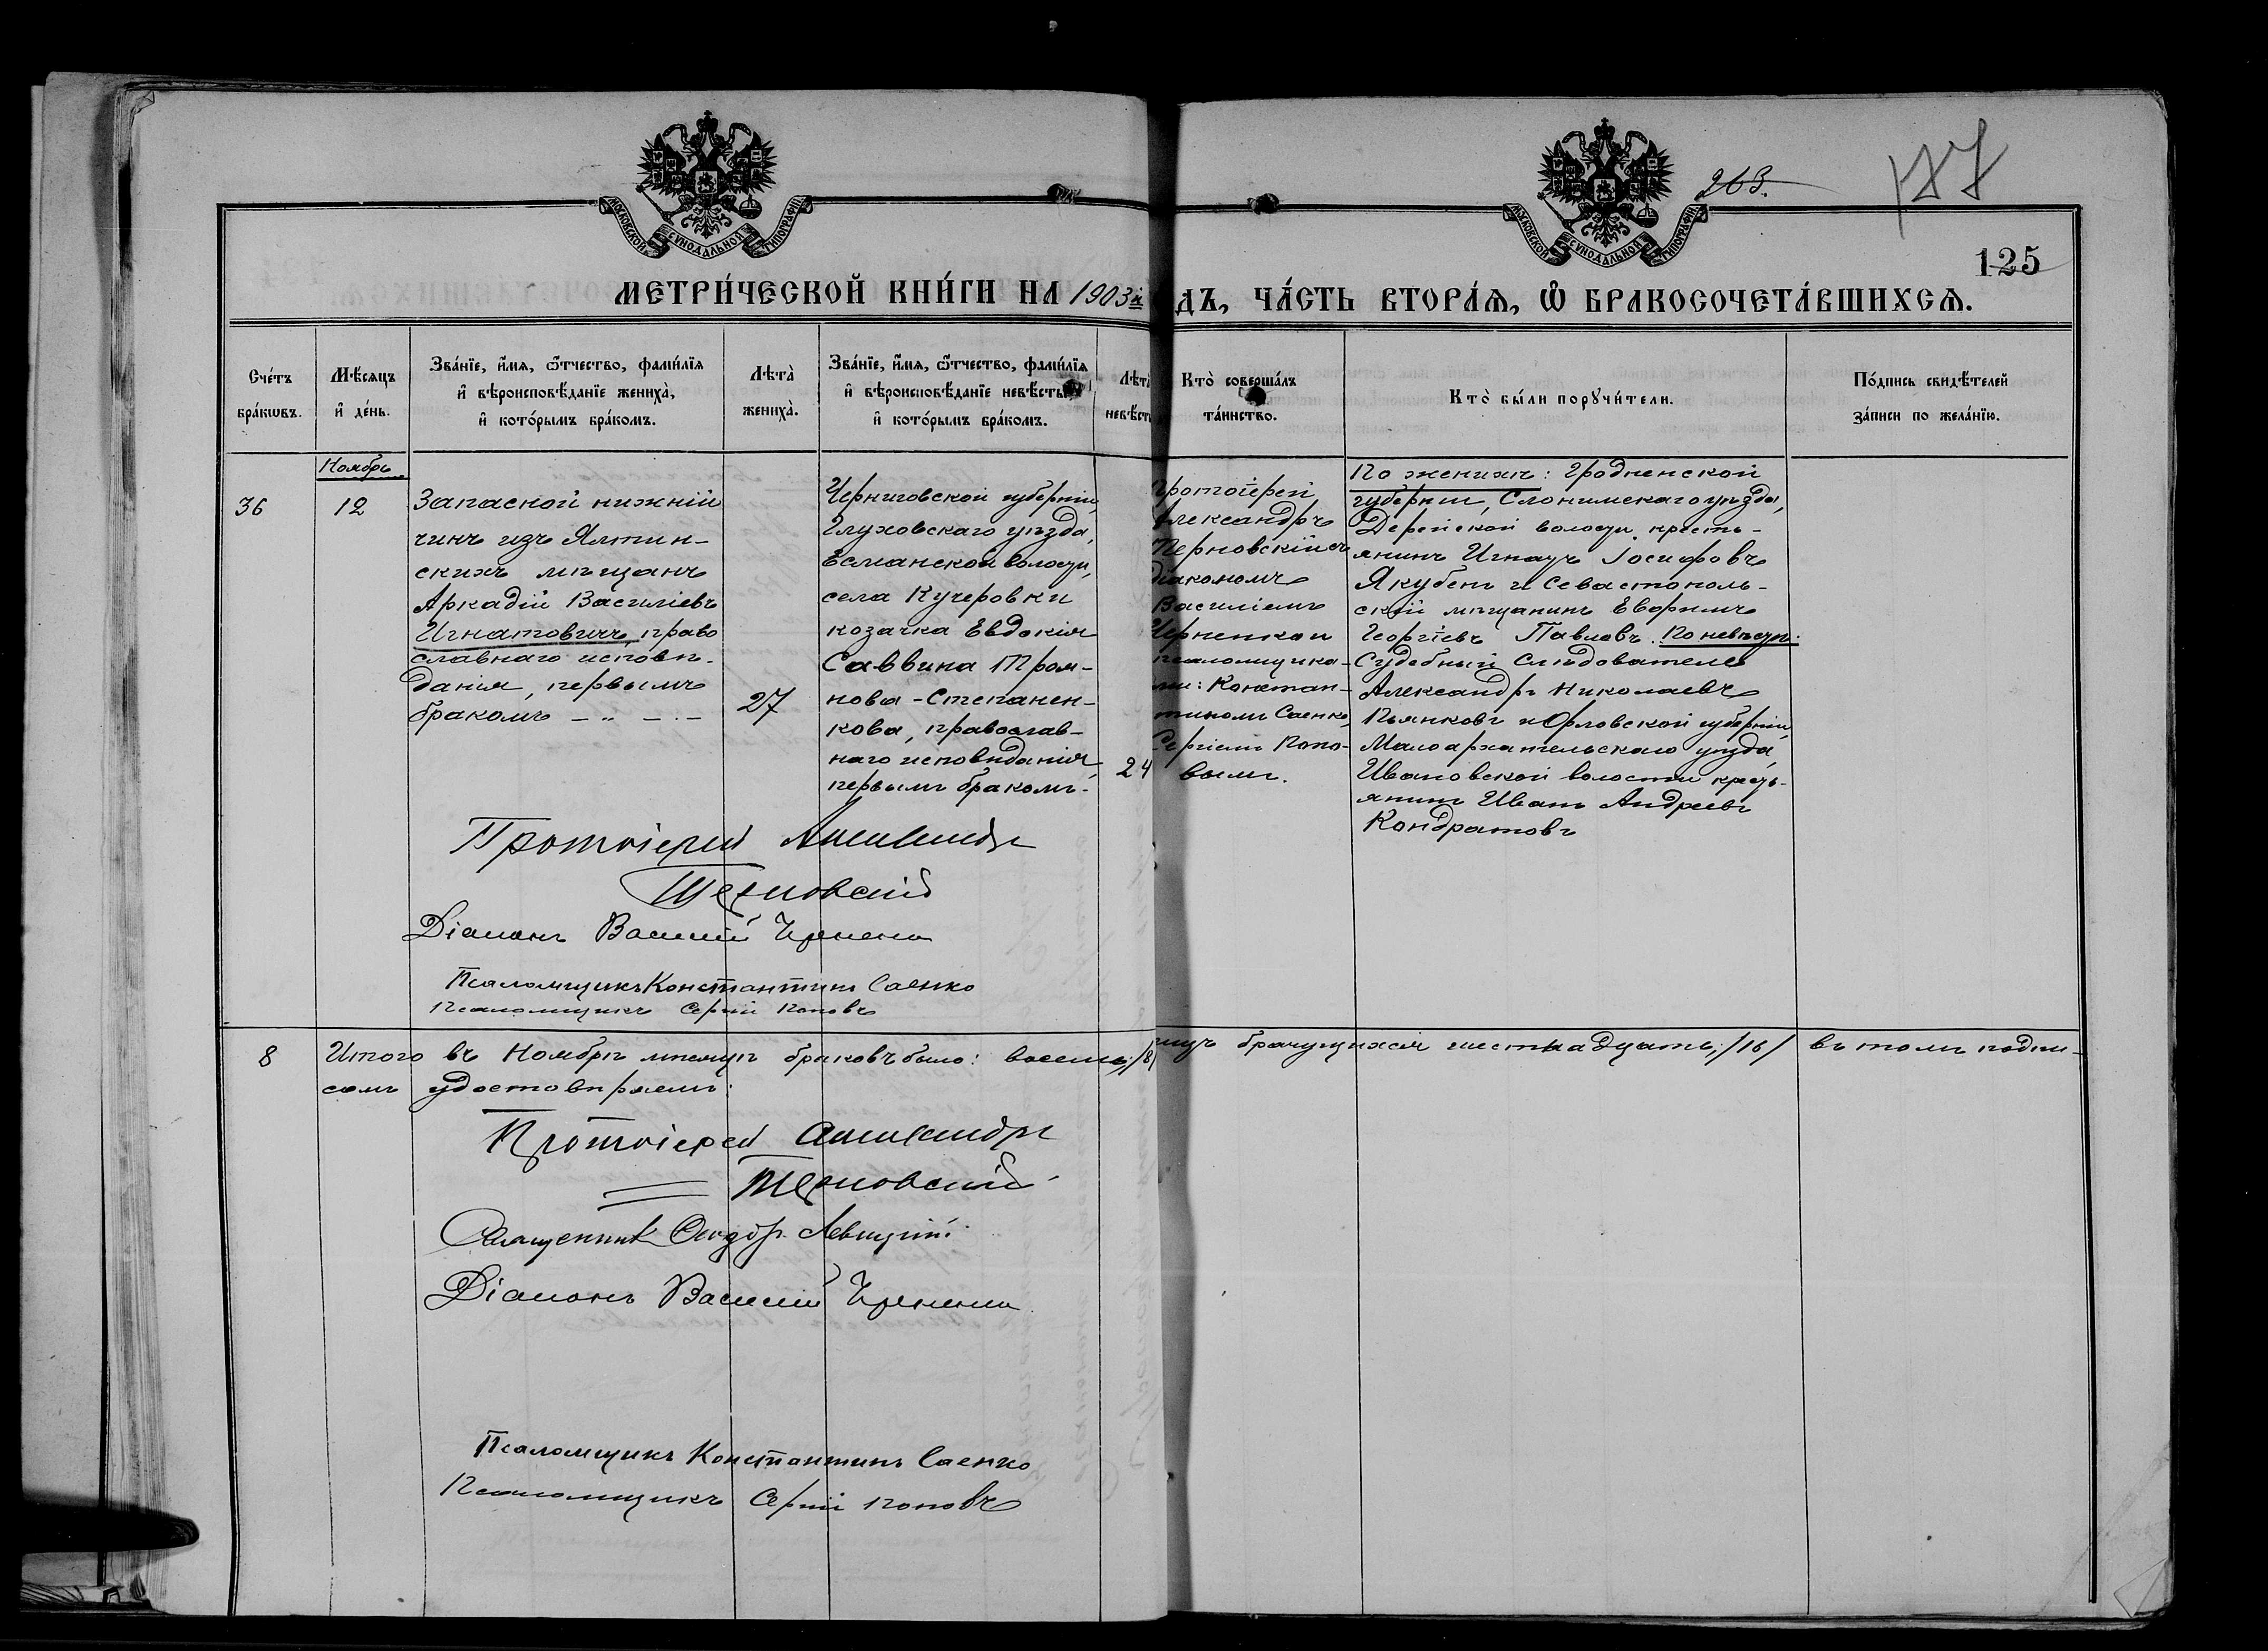 263.
177
125
МОСКОВСКОЙ СѴНОДАЛЬНОЙ ТИПОГРАФІИ
МОСКОВСКОЙ СѴНОДАЛЬНОЙ ТИПОГРАФІИ
МЕТРИ́ЧЕСКОЙ КНИ́ГИ НА 1903й ДЪ, ЧА́СТЬ ВТОРА́Ѧ, Ѽ БРАКОСОЧЕТА́ВШИХСѦ.
Сче́тъ бра́кѡвъ.
Мѣ́сяцъ и҆ де́нь.
Зва́нїе, и҆́мя, ѻ҆́тчество, фами́лїя
и҆ вѣроисповѣ́данїе жениха̀,
и҆ кото́рымъ бра́комъ.
Лѣта̀ жениха̀.
Зва́нїе, и҆́мя, ѻ҆́тчество, фами́лїя
и҆ вѣроисповѣ́данїе невѣ́сты,
и҆ кото́рымъ бра́комъ.
Лѣта̀ невѣ́ст
Кто̀ соверша́лъ та́инство.
Кто̀ бы́ли порꙋчи́тели.
По́дпись свидѣ́телей за́писи по жела́нїю.
Ноябрь
36
12
Запасной нижній
чинъ изъ Ялтин-
скихъ мѣщанъ
Аркадій Василіевъ
Игнатовичъ, право
славнаго исповѣ-
данія, первымъ
бракомъ – „ – . –
27
Черниговской губерніи,
Глуховскаго уѣзда,
Есманской волости,
села Кучеровки
козачка Евдокія
Саввина Троя-
нова-Степанен-
кова, православ-
наго исповѣданія,
первымъ бракомъ.
24
Протоіерей
Александръ
Терновскій съ
діакономъ
Василіемъ
Черненкои
псаломщика-
ми: Констан-
тиномъ Саенко,
Сергіемъ Попо-
вымъ.
По женихѣ: Гродненской
губерніи, Слонимскаго уѣзда,
Деречской волости кресть-
янинъ Игнатъ Іосифовъ
Якубен и Севастополь-
скій мѣщанинъ Евфимъ
Георгіевъ Павловъ. По невѣстѣ:
Судебный Слѣдователь
Александръ Николаевъ
Пьянковъ и Орловской губерніи,
Малоархангельскаго уѣзда,
Ивановской волости кресть-
янинъ Иванъ Андреевъ
Кондратовъ
Протоіерей Александръ
Терновскій
Діаконъ Василій Черненко
Псаломщикъ Константинъ Саенко
Псаломщикъ Сергій Поповъ
8
Итого въ Ноябрѣ мѣсяцѣ браковъ было: восемь, /8/ лицъ брачущихся шестнадцать, /16/ въ томъ подпи-
сомъ удостовѣряемъ:
Протоіерей Александръ
Терновскій
Священникъ Ѳеодоръ Левицкій
Діаконъ Василій Черненко
Псаломщикъ Константинъ Саенко
Псаломщикъ Сергій Поповъ